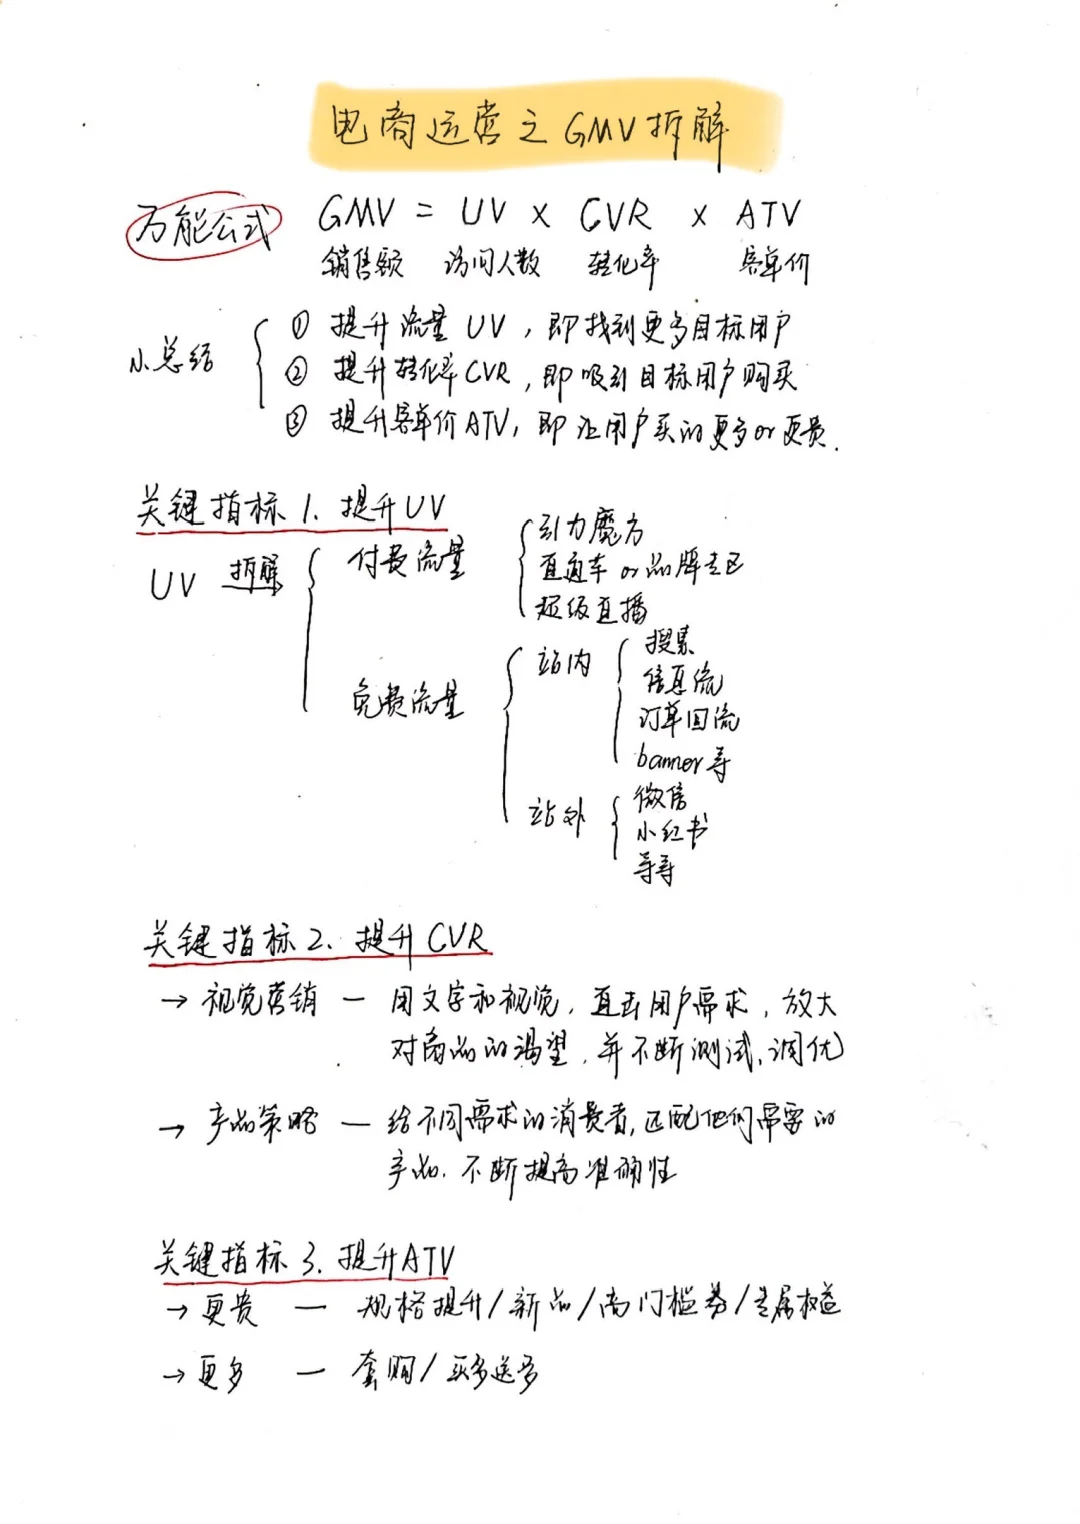 电商运营之GMV拆解
万能公式 GMV = UV × CVR × ATV
销售额 访问人数 转化率 客单价
小总结
① 提升流量 UV，即找到更多目标用户
② 提升转化率CVR，即吸引目标用户购买
③ 提升客单价ATV，即让用户买的更多or更贵.
关键指标1. 提升UV
UV 拆解
付费流量
引力魔方
直通车 or 品牌专区
超级直播
免费流量
站内
搜索
信息流
订单回流
banner等
站外
微信
小红书
等等
关键指标2. 提升CVR
→ 视觉营销 — 用文字和视觉，直击用户需求，放大
对商品的渴望，并不断测试、调优
→ 产品策略 — 给不同需求的消费者,匹配他们需要的
产品. 不断提高准确性
关键指标3. 提升ATV
→ 更贵 — 规格提升/新品/高门槛券/专属权益
→ 更多 — 套购/买多送多